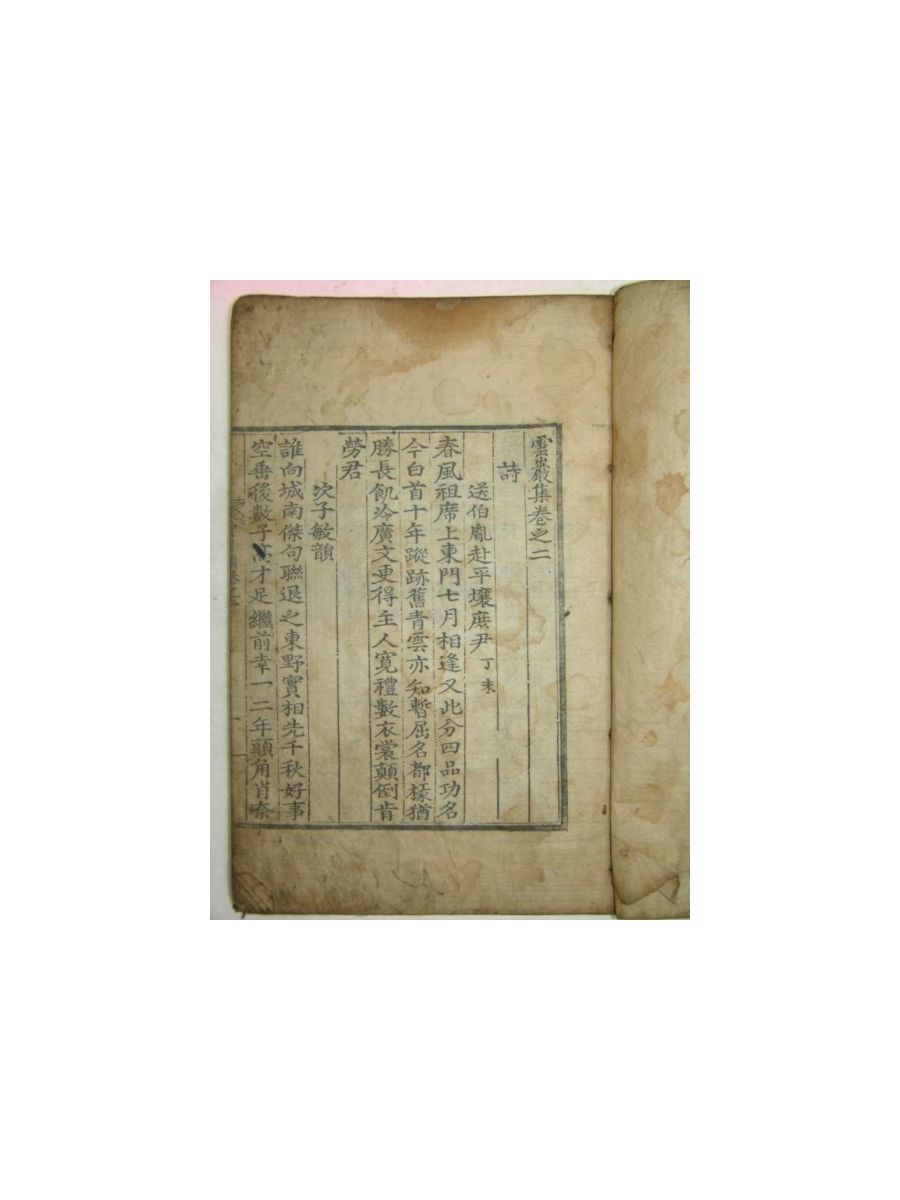 雲巖集卷之二
詩
送伯胤赴平壤庶尹 丁未
春風祖席上東門七月相逢又此分四品功名
今白首十年蹤跡舊青雲亦知暫屈名都㨾猶
勝長飢冷廣文更得主人寬禮數衣裳顛倒肯
勞君
次子敏韻
誰向城南傑句聯退之東野實相先千秋好事
空番後數子高才足繼前幸一二年頭角肖奈